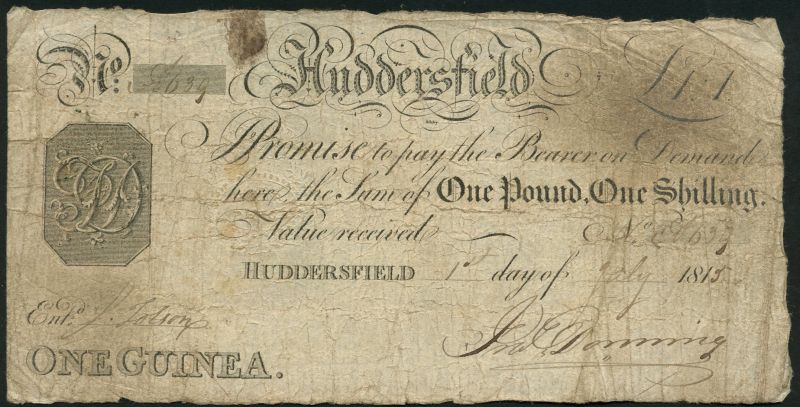 No. Huddersfield £1.1
I Promise to pay the Bearer on Demand
here, the Sum of One Pound, One Shilling.
Value received No.
Huddersfield 1st day of July 1815
Entd. J. Tolson
One Guinea.